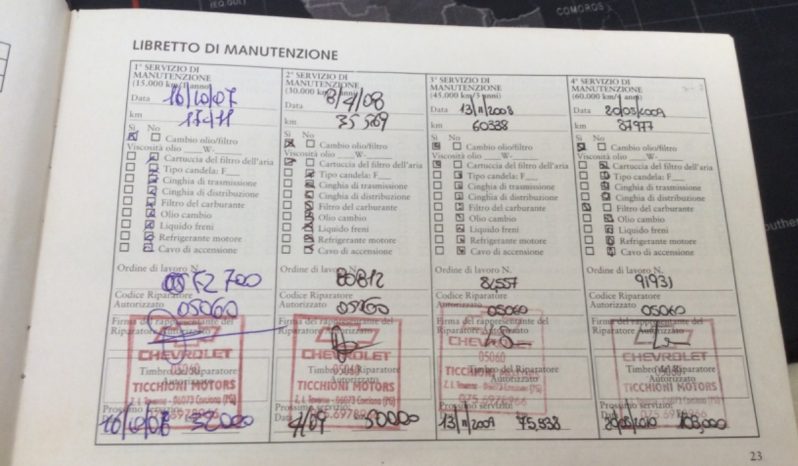 COMOROS
LIBRETTO DI MANUTENZIONE
1° SERVIZIO DI
MANUTENZIONE
(15.000 km/1 anno)
Data 16/10/07
km
Sì No
Cambio olio/filtro
Viscosità olio ___W-___
Cartuccia del filtro dell'aria
Tipo candela: F___
Cinghia di trasmissione
Cinghia di distribuzione
Filtro del carburante
Olio cambio
Liquido freni
Refrigerante motore
Cavo di accensione
Ordine di lavoro N.
Codice Riparatore
Autorizzato 05060
Firma del rappresentante del
Riparatore Autorizzato
CHEVROLET
05060
Timbro del Riparatore
Autorizzato
TICCHIONI MOTORS
Z. I. Taverne - 06073 Corciano (PG)
Prossimo servizio:
16/10/08 32000
2° SERVIZIO DI
MANUTENZIONE
(30.000 km/2 anni)
Data 8/4/08
km 35569
Sì No
Cambio olio/filtro
Viscosità olio ___W-___
Cartuccia del filtro dell'aria
Tipo candela: F___
Cinghia di trasmissione
Cinghia di distribuzione
Filtro del carburante
Olio cambio
Liquido freni
Refrigerante motore
Cavo di accensione
Ordine di lavoro N.
80812
Codice Riparatore
Autorizzato
Firma del rappresentante del
Riparatore Autorizzato
CHEVROLET
Timbro del Riparatore
Autorizzato
TICCHIONI MOTORS
Z. I. Taverne - 06073 Corciano (PG)
Prossimo servizio:
Data 4/09 50000
3° SERVIZIO DI
MANUTENZIONE
(45.000 km/3 anni)
Data 13/11/2008
km 60338
Sì No
Cambio olio/filtro
Viscosità olio ___W-___
Cartuccia del filtro dell'aria
Tipo candela: F___
Cinghia di trasmissione
Cinghia di distribuzione
Filtro del carburante
Olio cambio
Liquido freni
Refrigerante motore
Cavo di accensione
Ordine di lavoro N.
84557
Codice Riparatore
Autorizzato 05060
Firma del rappresentante del
Riparatore Autorizzato
CHEVROLET
05060
Timbro del Riparatore
Autorizzato
TICCHIONI
075.6978966
Prossimo servizio:
13/11/2009 75,338
4° SERVIZIO DI
MANUTENZIONE
(60.000 km/4 anni)
Data 20/05/2009
km 87977
Sì No
Cambio olio/filtro
Viscosità olio ___W-___
Cartuccia del filtro dell'aria
Tipo candela: F___
Cinghia di trasmissione
Cinghia di distribuzione
Filtro del carburante
Olio cambio
Liquido freni
Refrigerante motore
Cavo di accensione
Ordine di lavoro N.
91931
Codice Riparatore
Autorizzato 05060
Firma del rappresentante del
Riparatore Autorizzato
CHEVROLET
Timbro del Riparatore
Autorizzato
TICCHIONI MOTORS
Z. I. Taverne - 06073 Corciano (PG)
075.6978966
Prossimo servizio:
20/05/2010 103,000
23